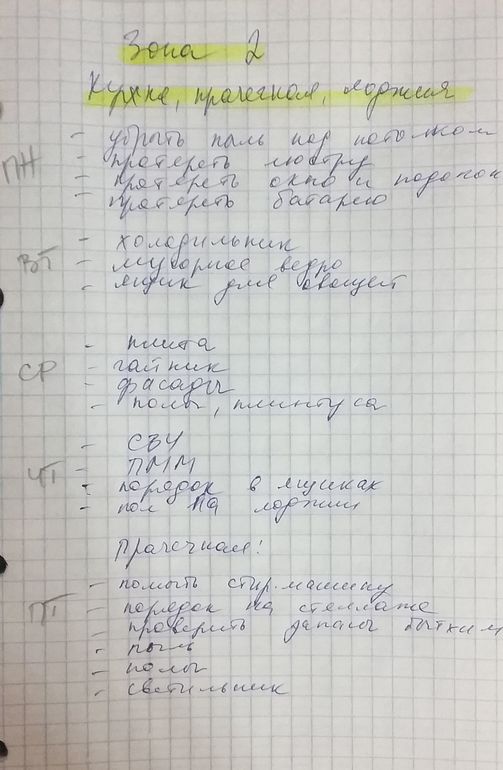 Зона 2
Кухня, прачечная, лоджия
ПН
- убрать пыль под потолком
- протереть люстру
- протереть окно и подокон
- протереть батарею
ВТ
- холодильник
- мусорное ведро
- ящик для овощей
СР
- плита
- чайник
- фасады
- полы, плинтуса
ЧТ
- СВЧ
- ПММ
- порядок в ящиках
- пол на лоджии
Прачечная:
ПТ
- помыть стир. машину
- порядок на стеллаже
- проверить запасы бытхим
- пыль
- полы
- светильник